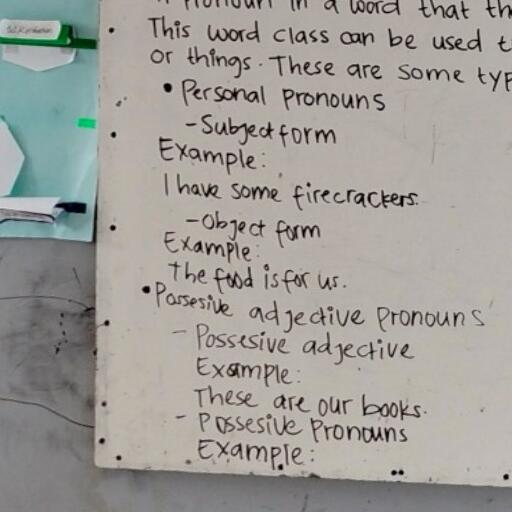 A Pronoun in a word that th
This word class can be used t
or things. These are some typ
• Personal pronouns
- Subject form
Example:
I have some firecrackers.
- Object form
Example:
The food is for us.
• Possesive adjective pronouns
- Possesive adjective
Example:
These are our books.
- Possesive Pronouns
Example: